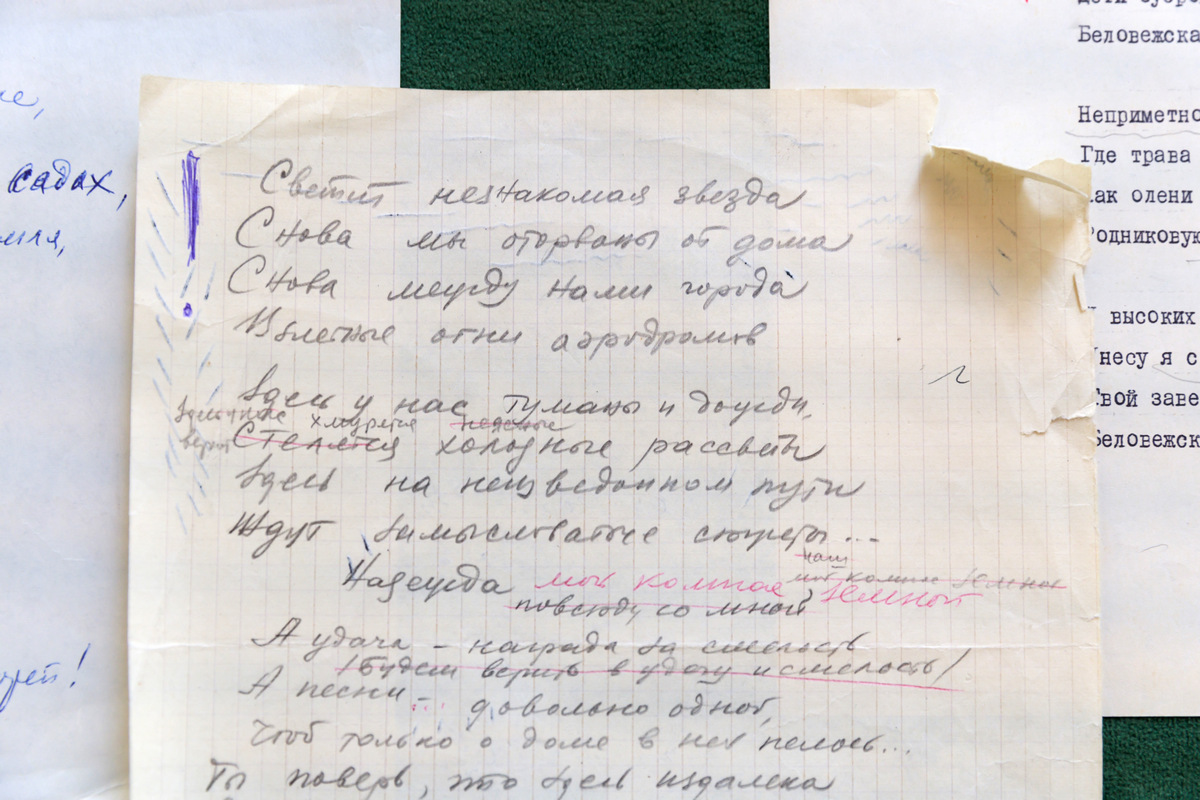 садах,
Светит незнакомая звезда
Снова мы оторваны от дома
Снова между нами города
Взлетные огни аэродромов
Здесь у нас туманы и дожди,
хмурятся неясные
Стелятся холодные рассветы
Здесь на неизведанном пути
Ждут замысловатые сюжеты...
наш
Надежда мой компас земной мой компас земной
повсюду со мной
А удача – награда за смелость
/Будем верить в удачу и смелость/
А песни... довольно одной,
Чтоб только о доме в ней пелось...
Ты поверь, что здесь издалека
Беловежска
Неприметно
Где трава
как олени
Родниковую
И высоких
Унесу я с
Твой заве
Беловежск